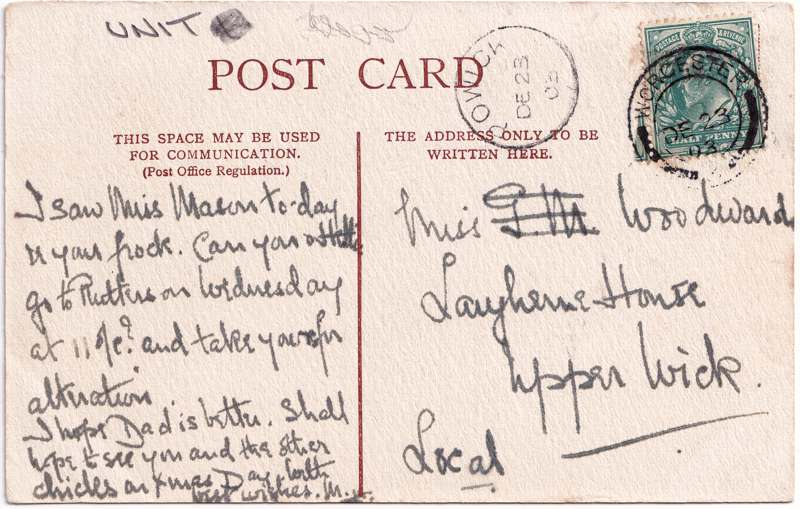 UNIT
POST CARD
POWICK
DE 23
03
POSTAGE & REVENUE
HALF PENNY
WORCESTER
DE 23
03
THIS SPACE MAY BE USED
FOR COMMUNICATION.
(Post Office Regulation.)
I saw Miss Mason to-day
re your frock. Can you
go to Rutters on Wednesday
at 11 o/c? and take yours for
alteration.
I hope Dad is better. Shall
hope to see you and the other
chicks on Xmas Day with
best wishes. M.
THE ADDRESS ONLY TO BE
WRITTEN HERE.
Miss Woodward
Laugherne House
Upper Wick.
Local